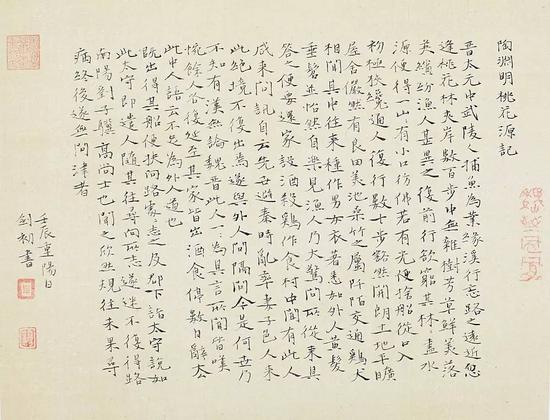 陶淵明桃花源記
晉太元中武陵人捕魚為業緣溪行忘路之遠近忽
逢桃花林夾岸數百步中無雜樹芳草鮮美落
英繽紛漁人甚異之復前行欲窮其林〻盡水
源便得一山〻有小口彷彿若有光便捨船從口入
初極狹纔通人復行數十步豁然開朗土地平曠
屋舍儼然有良田美池桑竹之屬阡陌交通鷄犬
相聞其中往來種作男女衣著悉如外人黃髮
垂髫並怡然自樂見漁人乃大驚問所從來具
答之便要還家設酒殺鷄作食村中聞有此人
咸來問訊自云先世避秦時亂率妻子邑人來
此絕境不復出焉遂與外人間隔問今是何世乃
不知有漢無論魏晉此人一〻為具言所聞皆嘆
惋餘人各復延至其家皆出酒食停數日辭去
此中人語云不足為外人道也
既出得其船便扶向路處〻志之及郡下詣太守說如
此太守即遣人隨其往尋向所志遂迷不復得路
南陽劉子驥高尚士也聞之欣然規往未果尋
病終後遂無問津者
壬辰重陽日
書